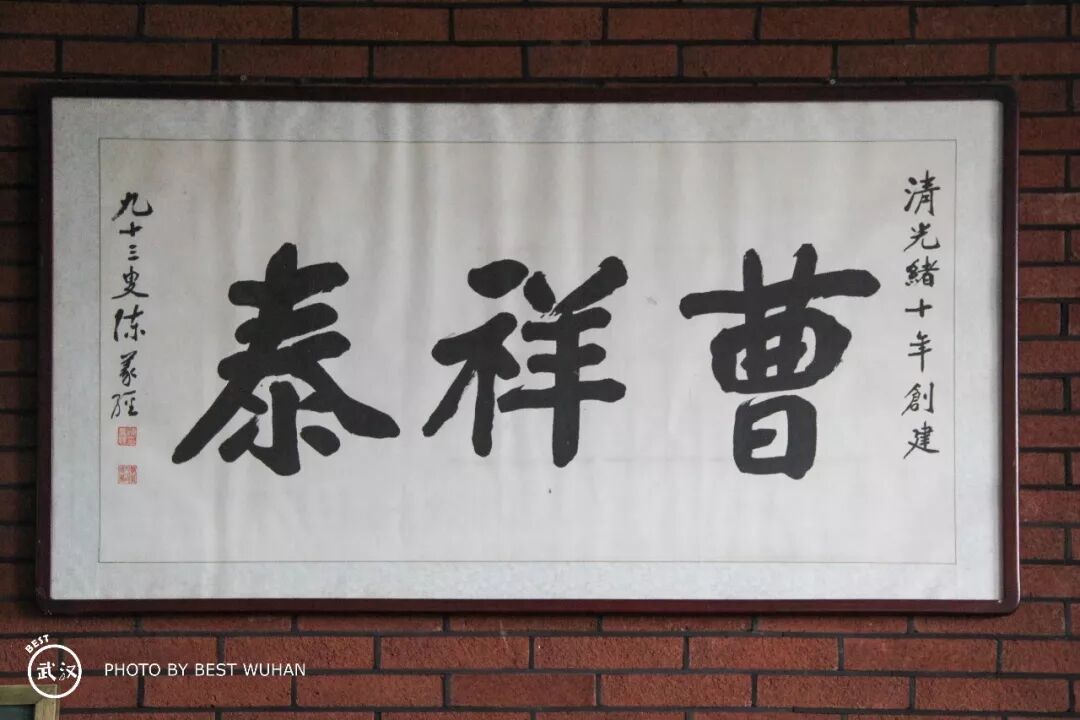 清光緒十年創建
曹祥泰
九十三叟陳義經
BEST
武汉
PHOTO BY BEST WUHAN